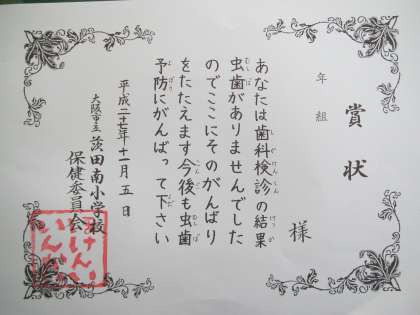 賞状
年 組
様
あなたは歯科検診の結果
虫歯がありませんでした
のでここにそのがんばり
をたたえます今後も虫歯
予防にがんばって下さい
平成二十七年十一月五日
大阪市立茨田南小学校
保健委員会
ほけんい
いんかい